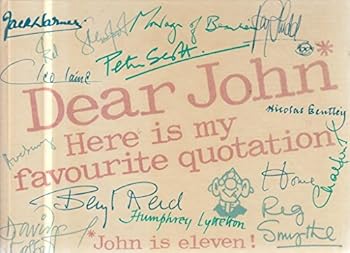 Jack Warner
Montagu of Beaulieu
Cleo Laine
Peter Scott
Dear John*
Nicolas Bentley
Here is my
favourite quotation
Beryl Reid
Home
Humphrey Lyttelton
Reg
Smythe
*John is eleven!